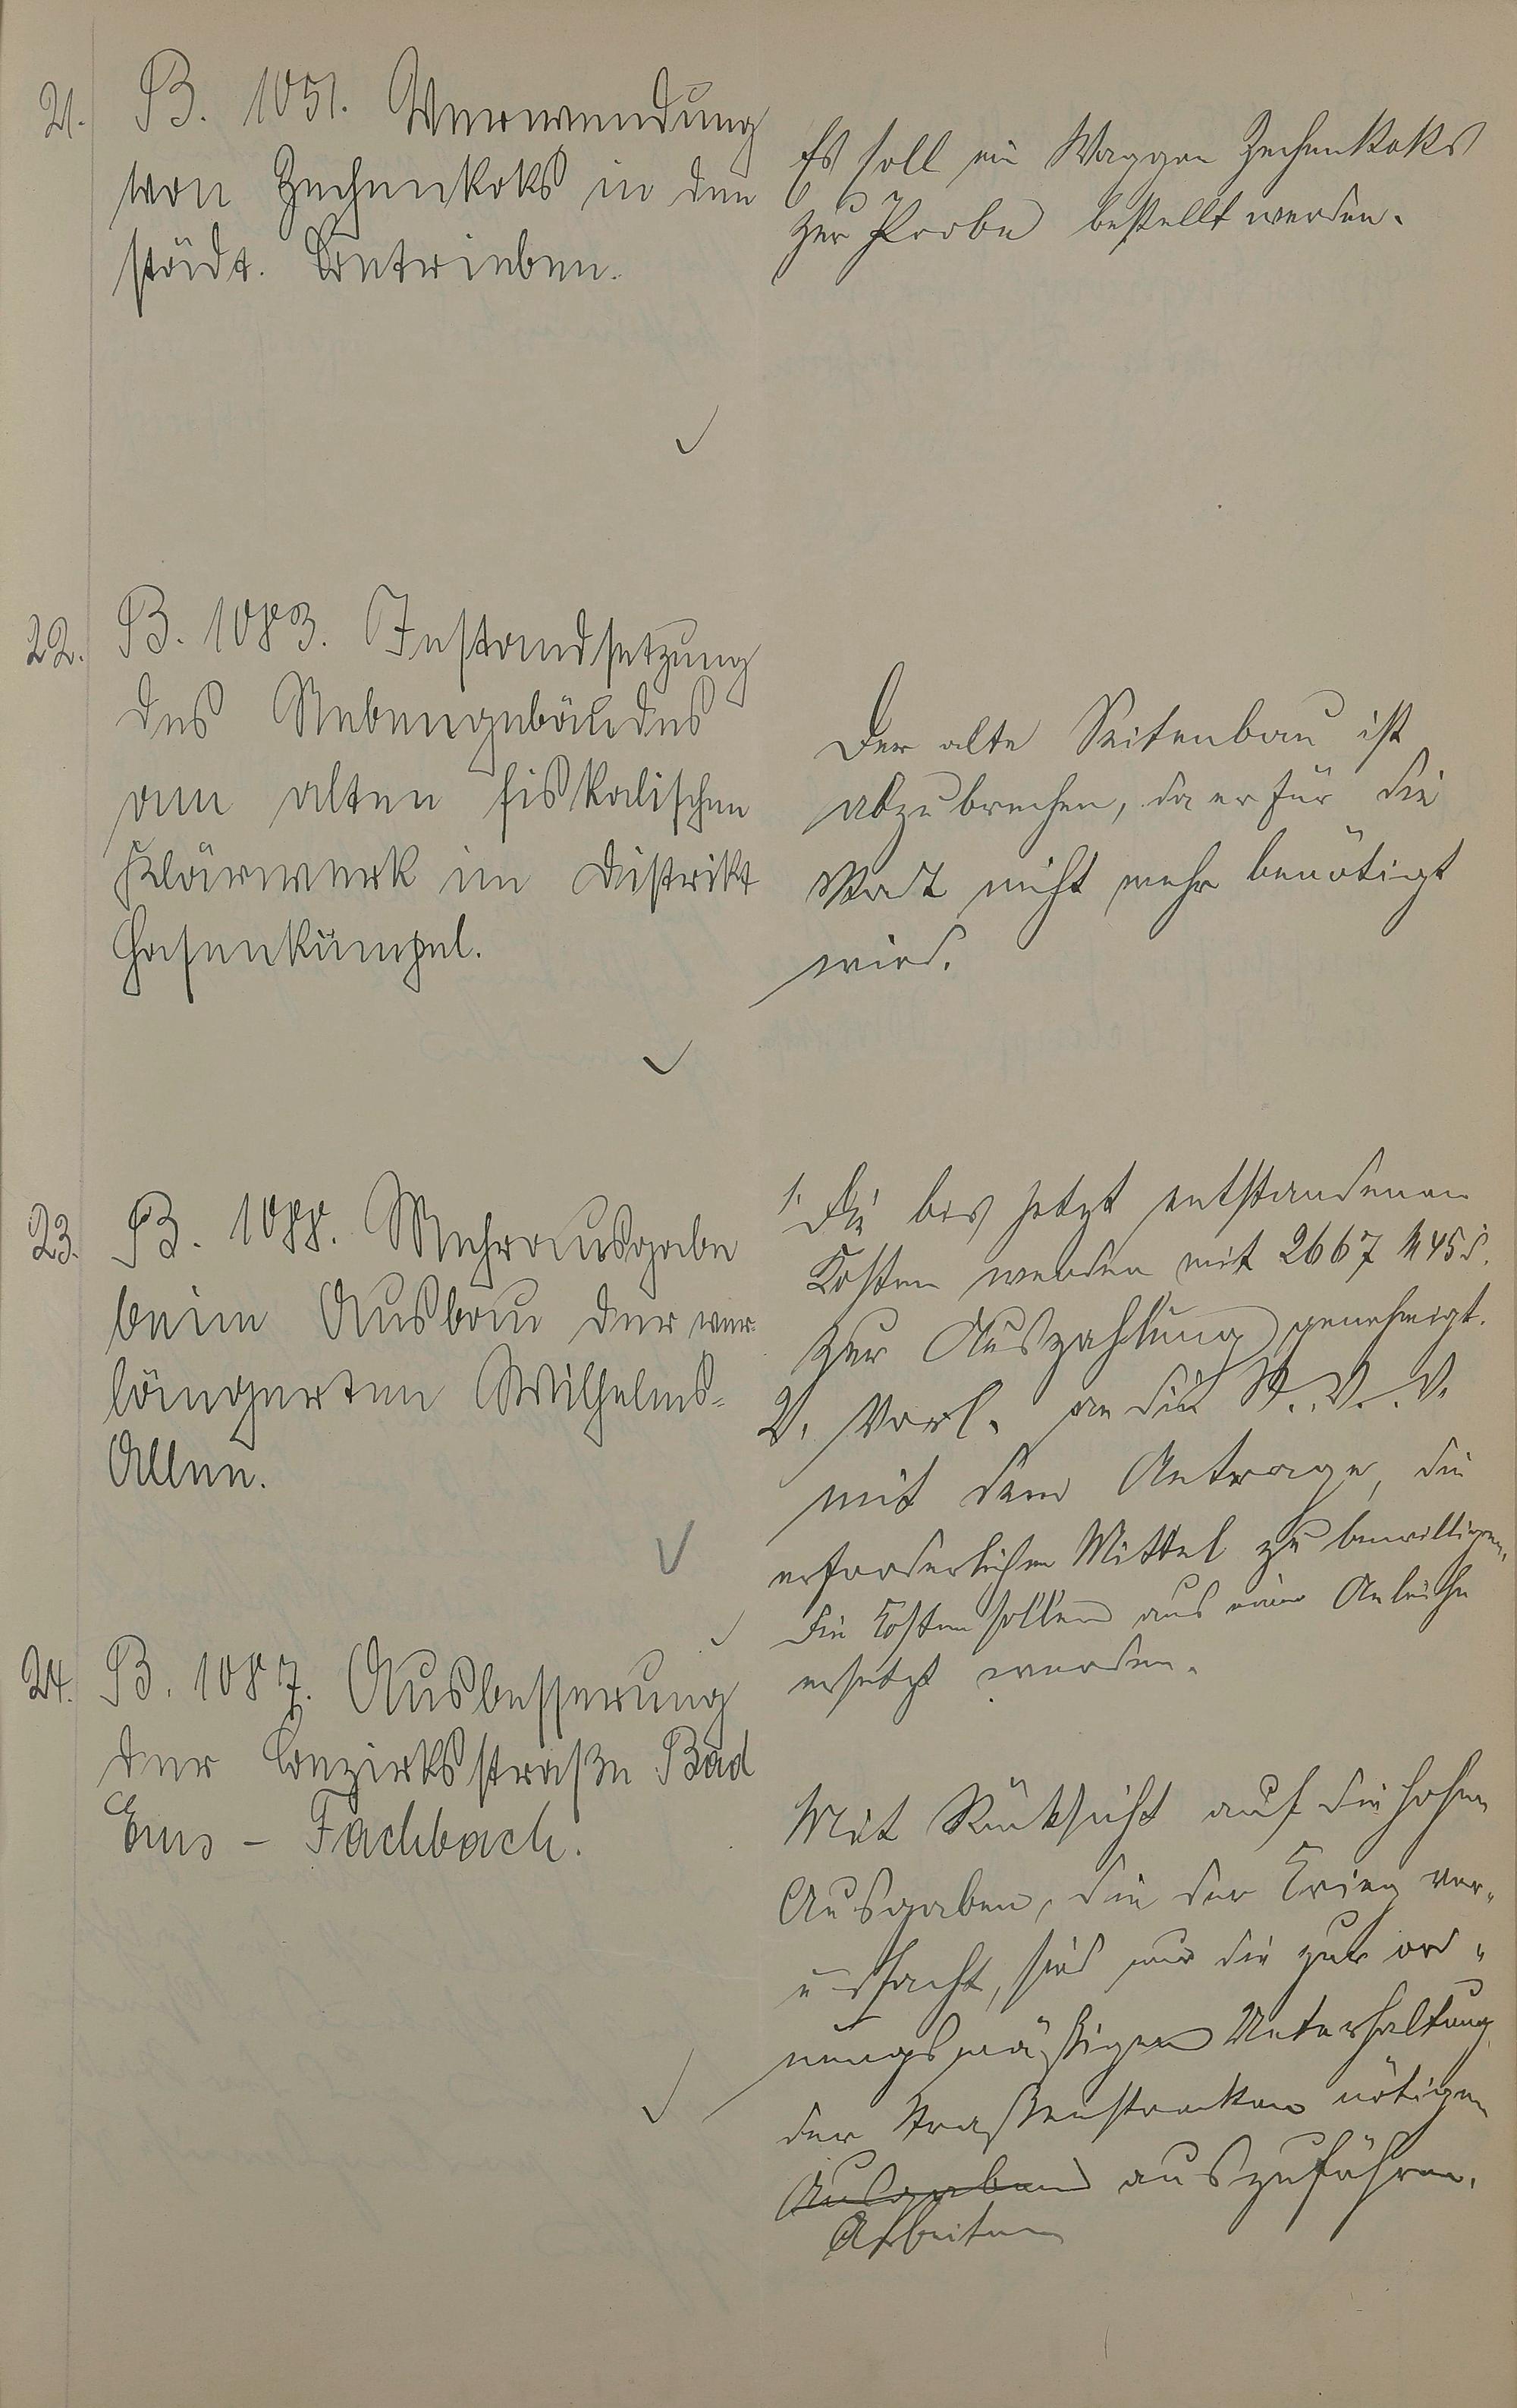 21. B. 1051. Verwendung
von Zechenkoks in den
städt. Betrieben.
Es soll ein Waggon Zechenkoks
zur Probe bestellt werden.
22. B. 1083. Instandsetzung
des Nebengebäudes
am alten fiskalischen
Klärwerk im Distrikt
Hasenkümpel.
Der alte Seitenbau ist
abzubrechen, da er für die
Stadt nicht mehr benötigt
wird.
23. B. 1088. Mehrausgabe
beim Ausbau der ver-
längerten Wilhelms-
Allee.
1. Die bis jetzt entstandenen
Kosten werden mit 2667 M 45 d.
zur Auszahlung genehmigt.
2. Vorl. an die St. V. V.
mit dem Antrage, die
erforderlichen Mittel zu bewilligen.
Die Kosten sollen aus einer Anleihe
ersetzt werden.
24. B. 1087. Ausbesserung
der Bezirksstraße Bad
Ems - Fachbach.
Mit Rücksicht auf die hohen
Ausgaben, die der Krieg ver-
ursacht, sind nur die zur ord-
nungsmäßigen Unterhaltung
der Straßenstrecken nötigen
Ausgaben auszuführen.
Arbeiten